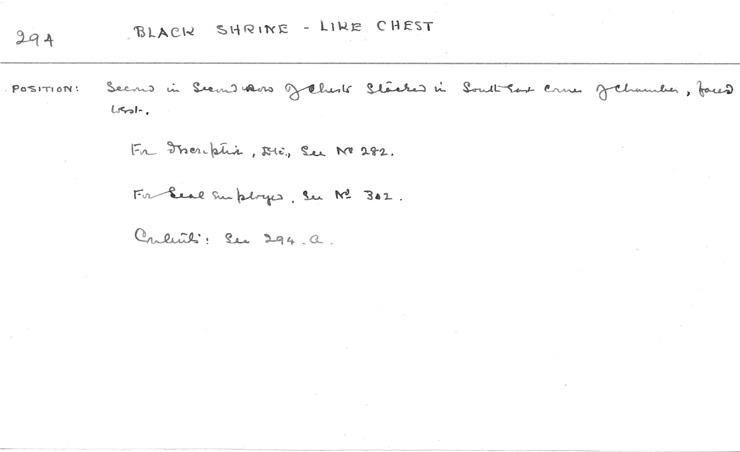 294
BLACK SHRINE - LIKE CHEST
POSITION: Second in Second Row of Chests Stacked in South East Corner of Chamber, faced
West.
For Description, Etc., See Nº 282.
For Seal Employed, See Nº 302.
Contents: See 294.a.